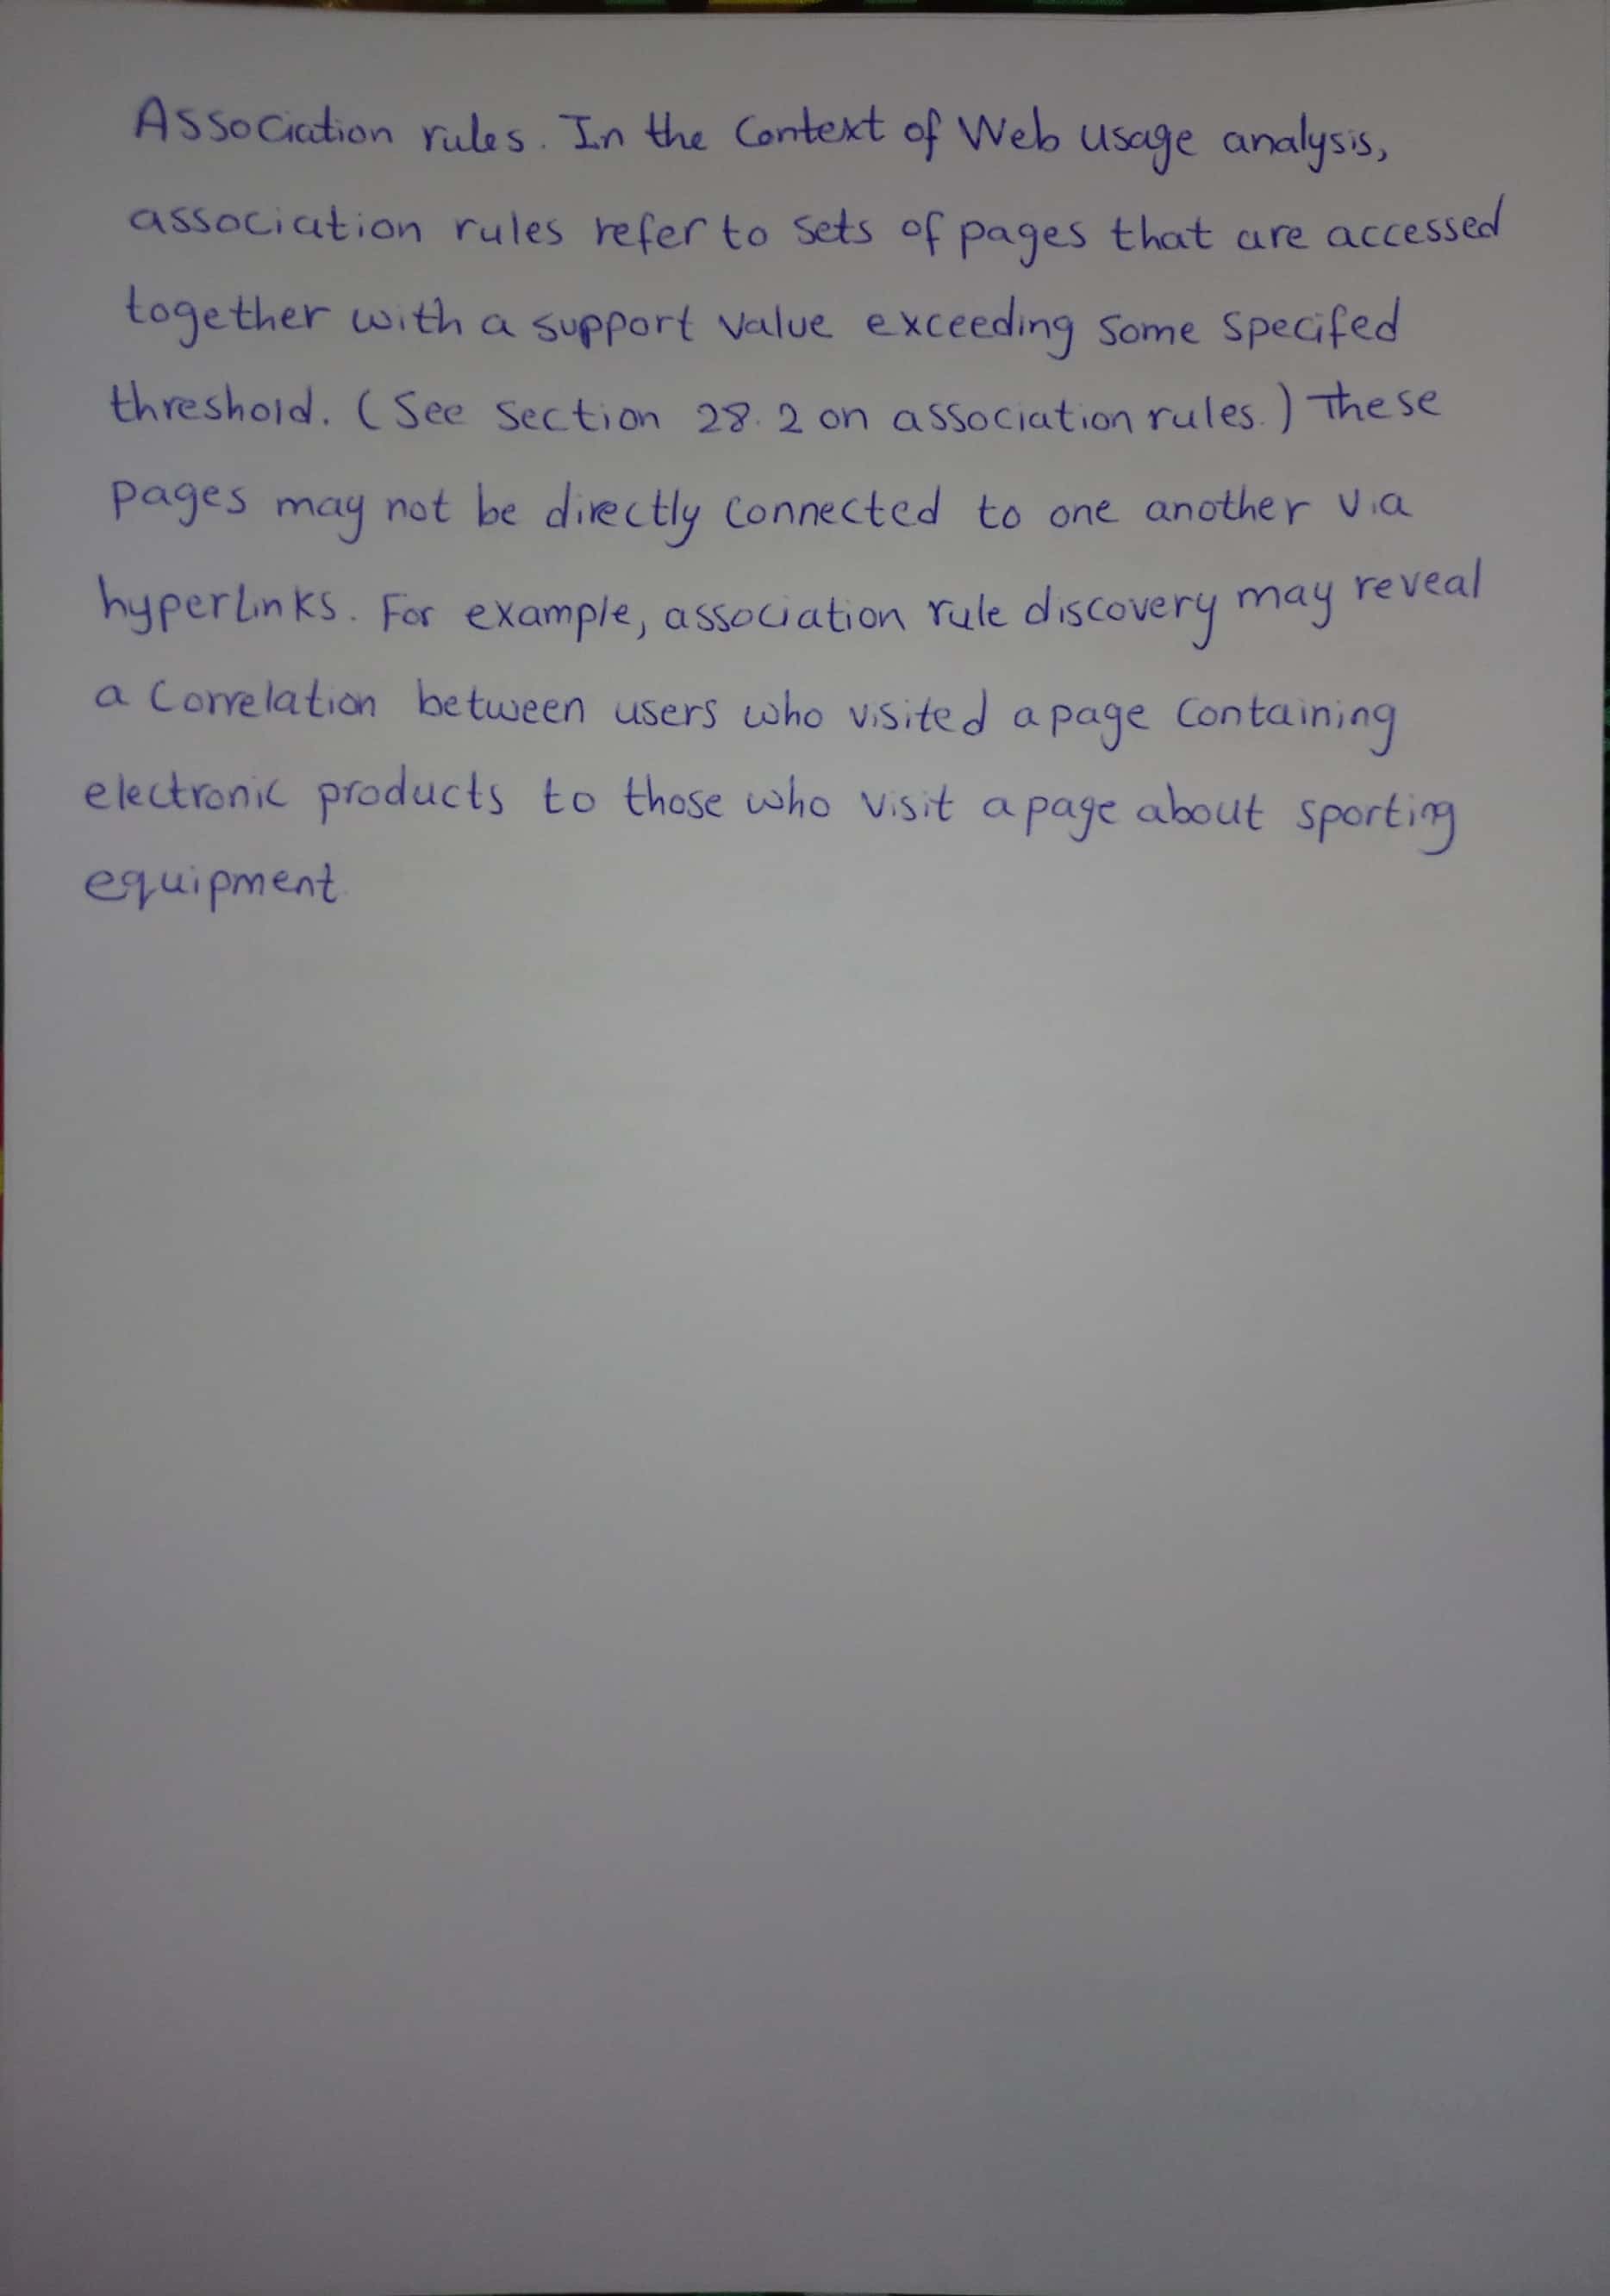 Association rules. In the Context of Web usage analysis,
association rules refer to sets of pages that are accessed
together with a support value exceeding some specifed
threshold. (See section 28.2 on association rules.) These
pages may not be directly connected to one another via
hyperlinks. For example, association rule discovery may reveal
a Correlation between users who visited a page containing
electronic products to those who visit a page about sporting
equipment.